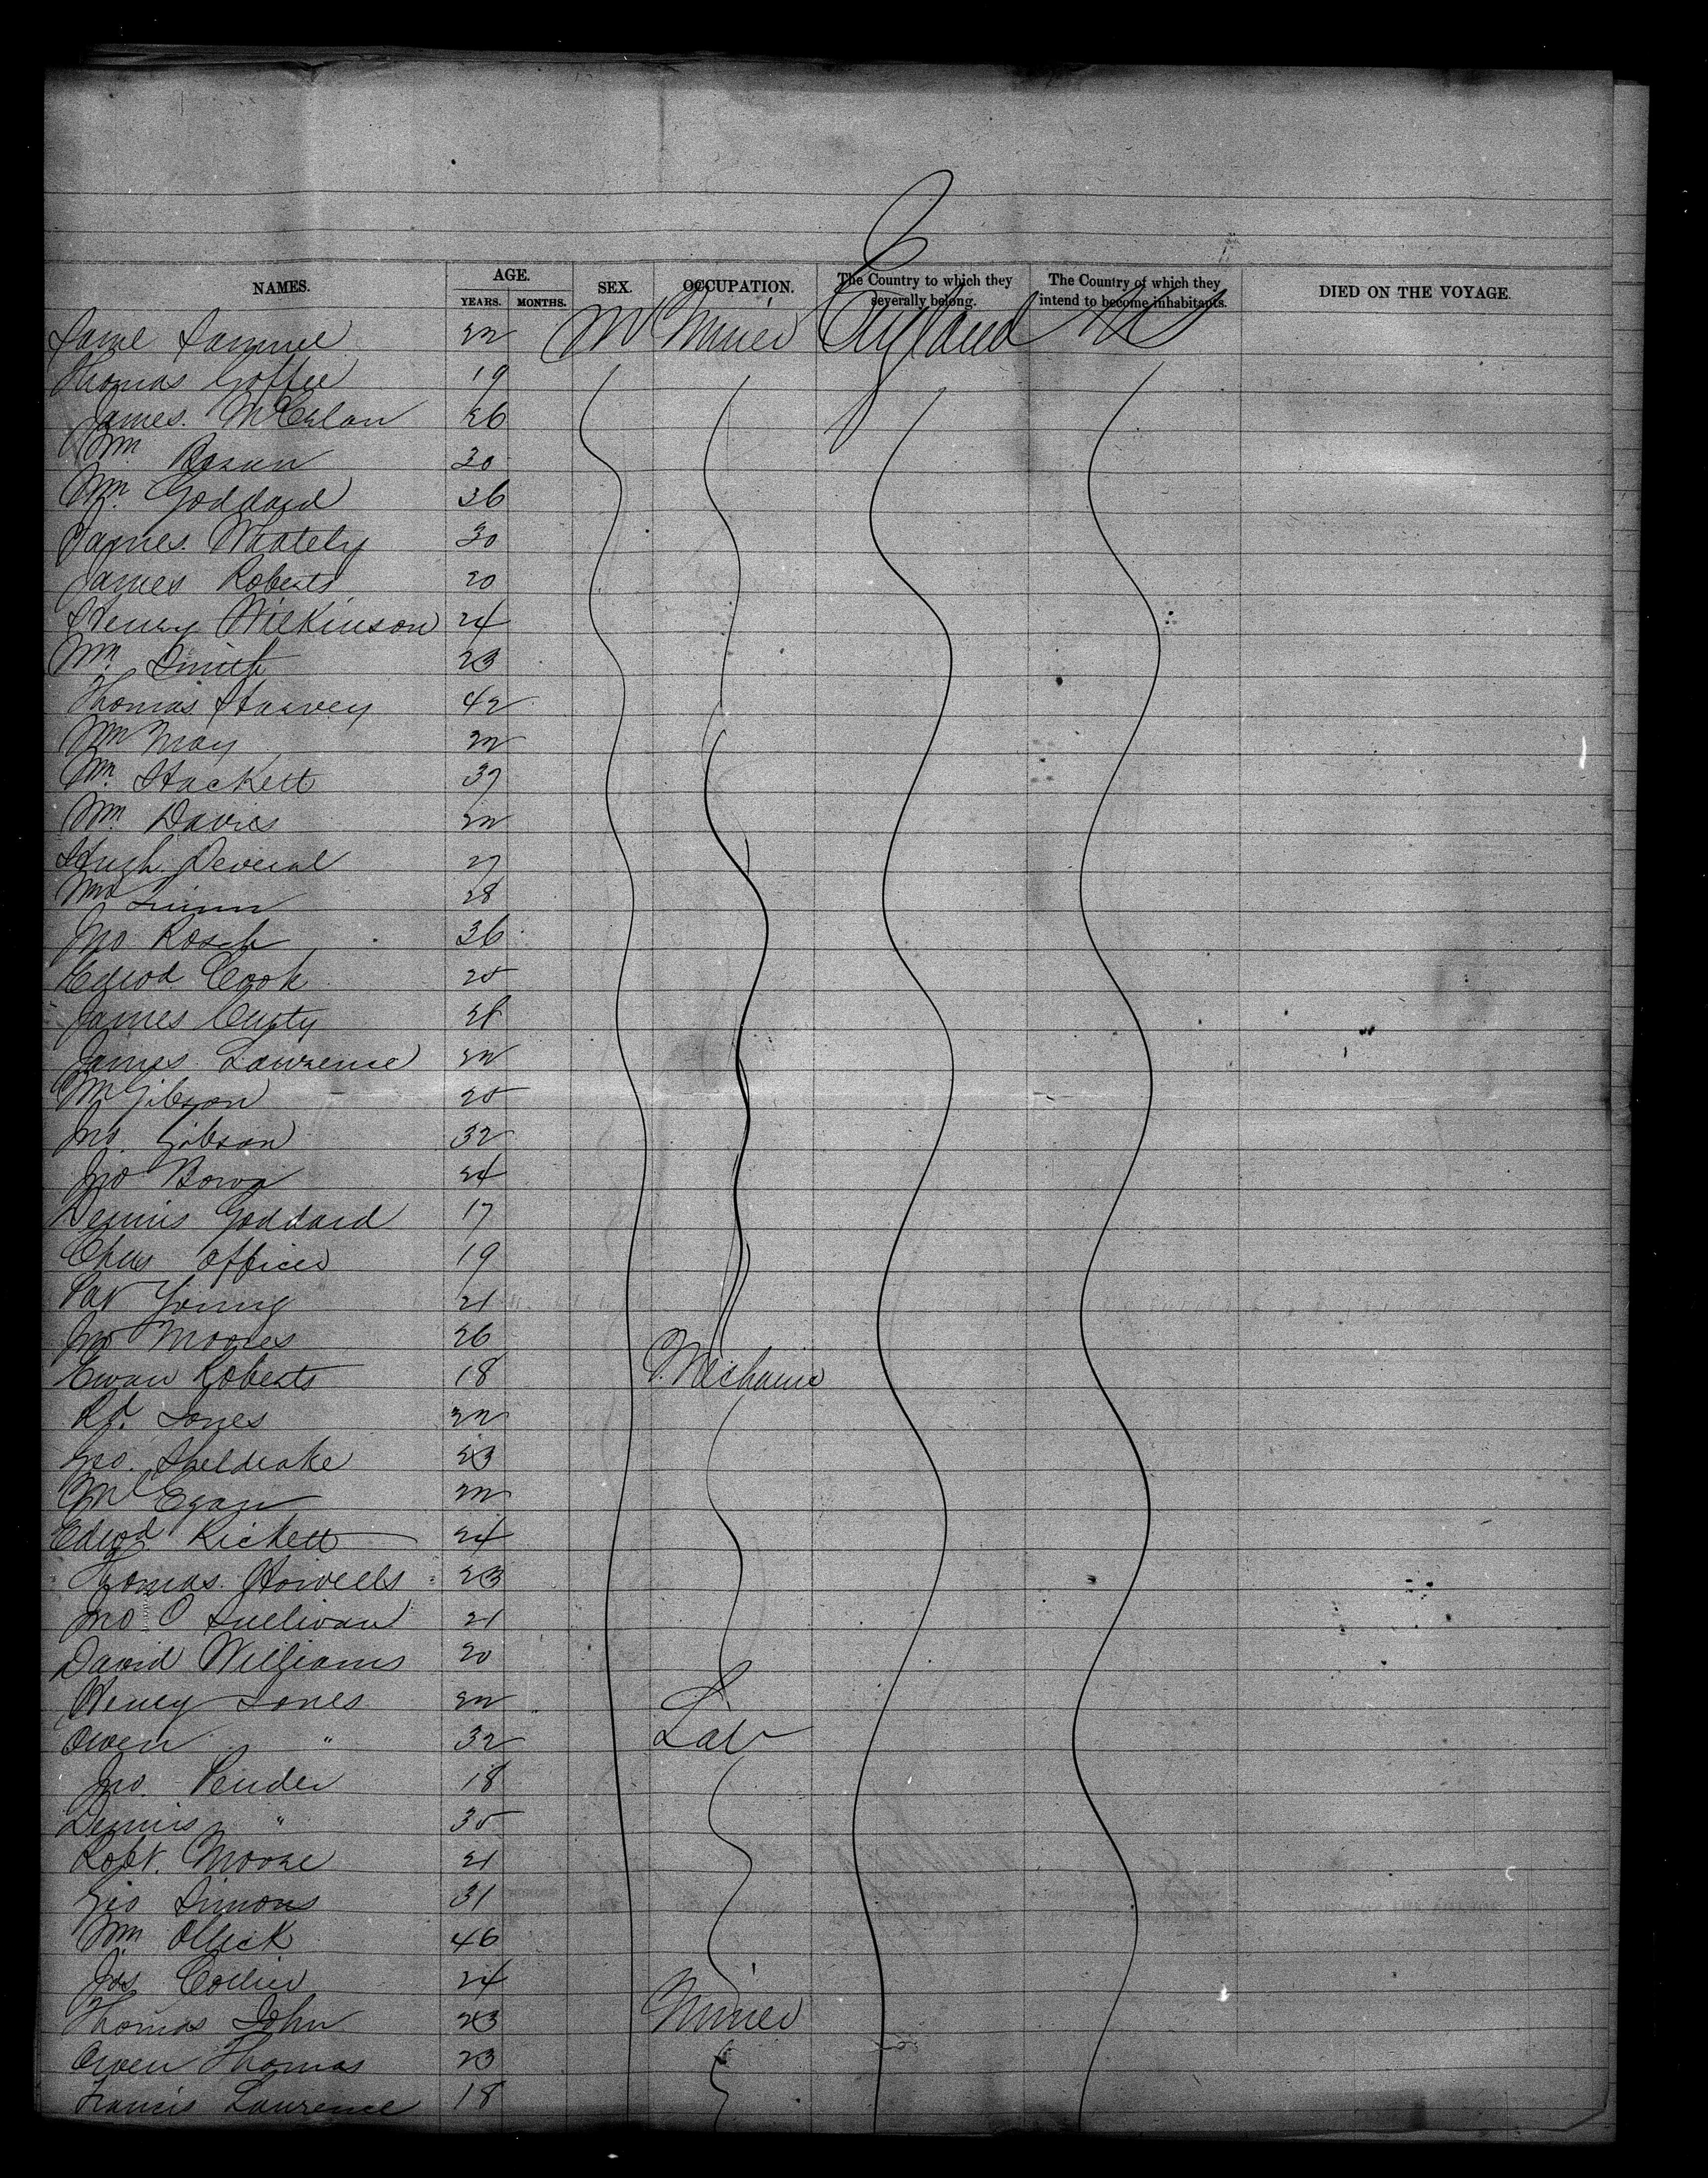 NAMES. AGE. YEARS. MONTHS. SEX. OCCUPATION. The Country to which they severally belong. The Country of which they intend to become inhabitants. DIED ON THE VOYAGE.
22 M Miner England US
Thomas 19
James 26
Wm 30
Wm Goddard 36
James Whately 30
James Roberts 20
Henry Wilkinson 24
Wm Smith 23
Thomas Harvey 42
Wm May 22
Wm Hackett 37
Wm Davies 22
Hugh Deveral 27
Wm Quinn 28
Jno Roach 36
Edwd Cook 25
James 28
James Lawrence 22
Wm Gibson 25
Jno Gibson 32
Jno 24
Dennis Goddard 17
Chas Officer 19
Pat Young 21
Jno Moores 26
Ewan Roberts 18 Mechanic
Rd. Jones 22
Geo. Sheldrake 23
Egan 22
Edwd Rickett 24
Thomas Howells 23
Jno O Sullivan 21
David Williams 20
Henry Jones 22
Owen " 32 Lab
Jno. Pender 18
Dennis " 35
Robt. Moore 21
Geo Simons 31
Wm Ollick 46
Jos Collier 24
Thomas John 23 Miner
Owen Thomas 23
Francis Lawrence 18